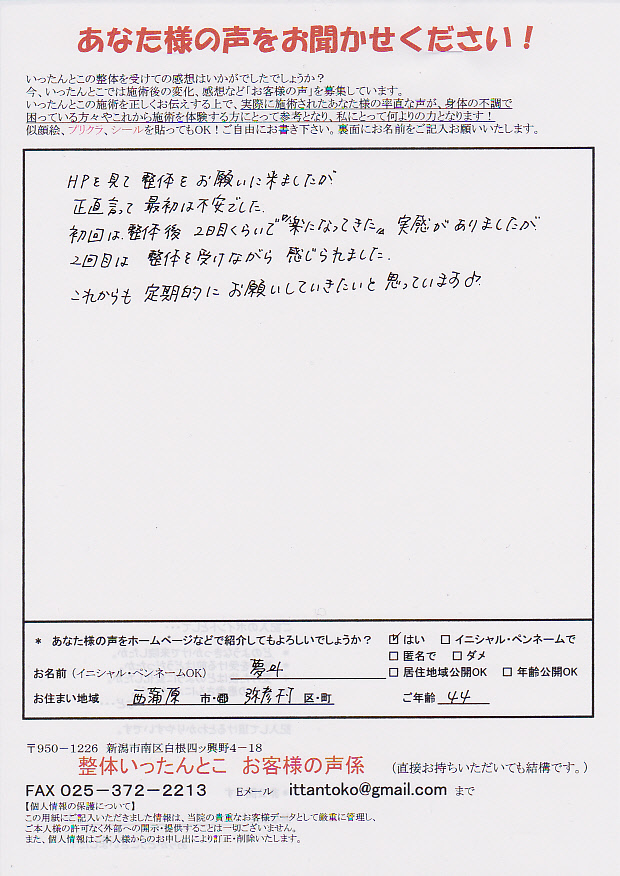 あなた様の声をお聞かせください！
いったんとこの整体を受けての感想はいかがでしたでしょうか？
今、いったんとこでは施術後の変化、感想など「お客様の声」を募集しています。
いったんとこの施術を正しくお伝えする上で、実際に施術されたあなた様の率直な声が、身体の不調で
困っている方々やこれから施術を体験する方にとって参考となり、私にとって何よりの力となります！
似顔絵、プリクラ、シールを貼ってもOK！ご自由にお書き下さい。裏面にお名前をご記入お願いいたします。
HPを見て 整体を お願いに来ましたが
正直言って 最初は不安でした.
初回は.整体後 2日目くらいで『楽になってきた』 実感がありましたが
2回目は 整体を受けながら 感じられました.
これからも 定期的に お願いしていきたいと 思っています♪
＊ あなた様の声をホームページなどで紹介してもよろしいでしょうか？ ☑ はい □ イニシャル・ペンネームで
□ 匿名で □ ダメ
お名前（イニシャル・ペンネームOK） 夢叶 □ 居住地域公開OK □ 年齢公開OK
お住まい地域 西蒲原 市・郡 弥彦村 区・町 ご年齢 44
〒950－1226 新潟市南区白根四ッ興野4－18
整体いったんとこ お客様の声係 （直接お持ちいただいても結構です。）
FAX 025－372－2213 Eメール ittantoko@gmail.com まで
【個人情報の保護について】
この用紙にご記入いただきました情報は、当院の貴重なお客様データとして厳重に管理し、
ご本人様の許可なく外部への開示・提供することは一切ございません。
また、個人情報はご本人様からのお申し出により訂正・削除いたします。